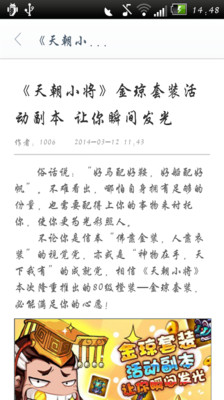 14:48
《天朝小...
《天朝小将》金琼套装活
动副本 让你瞬间发光
作者: 1006 2014-03-12 11:43
俗话说:“好马配好鞍,好船配好
帆”。不难看出,哪怕自身拥有足够的
份量,也需要配得上你的事物来衬托
你,使你更为光彩照人。
不论你是信奉“佛靠金装,人靠衣
装”的视觉党,亦或是“神物在手,天
下我有”的成就党,相信《天朝小将》
本次隆重推出的80级橙装—金琼套装,
必能满足你的心愿!
金琼套装
活动副本
让你瞬间发光